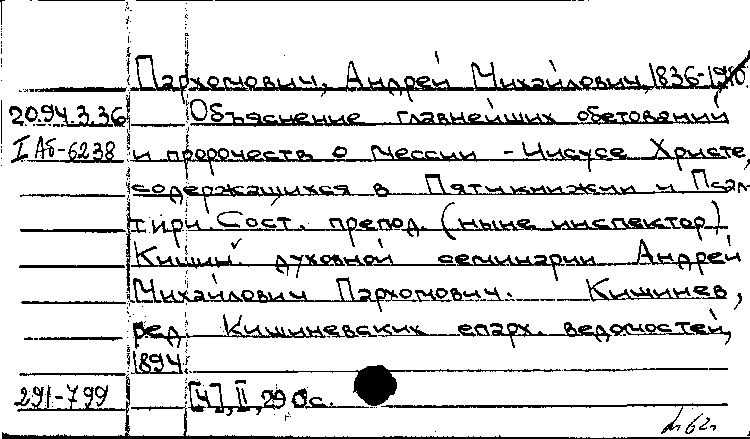 Пархомович, Андрей Михайлович, 1836-1910
2094.3.36 Объяснение главнейших обетований
I Аб-6238 и пророчеств о Мессии - Иисусе Христе,
содержащихся в Пятикнижии и Псал-
тири. Сост. препод. (ныне инспектор)
Кишин. духовной семинарии Андрей
Михайлович Пархомович. Кишинев,
ред. Кишиневских епарх. ведомостей,
1894
291-799 [4], II, 290 с.